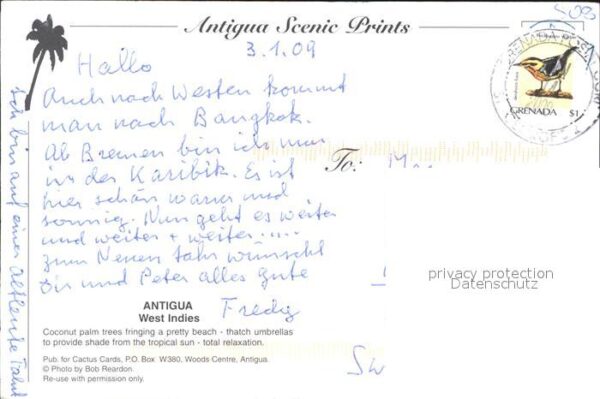 Antigua Scenic Prints
3.1.09
Hallo
Auch nach Westen kommt
man nach Bangkok.
Ab Bremen bin ich nun
in der Karibik. Es ist
hier schön warm und
sonnig. Nun geht es weiter
und weiter + weiter.....
zum Neuen Jahr wünscht
Dir und Peter alles Gute
Fredy
Ich bin auf einer
To:
M..
GRENADA $1
privacy protection
Datenschutz
ANTIGUA
West Indies
Coconut palm trees fringing a pretty beach - thatch umbrellas
to provide shade from the tropical sun - total relaxation.
Pub. for Cactus Cards, P.O. Box W380, Woods Centre, Antigua.
© Photo by Bob Reardon.
Re-use with permission only.